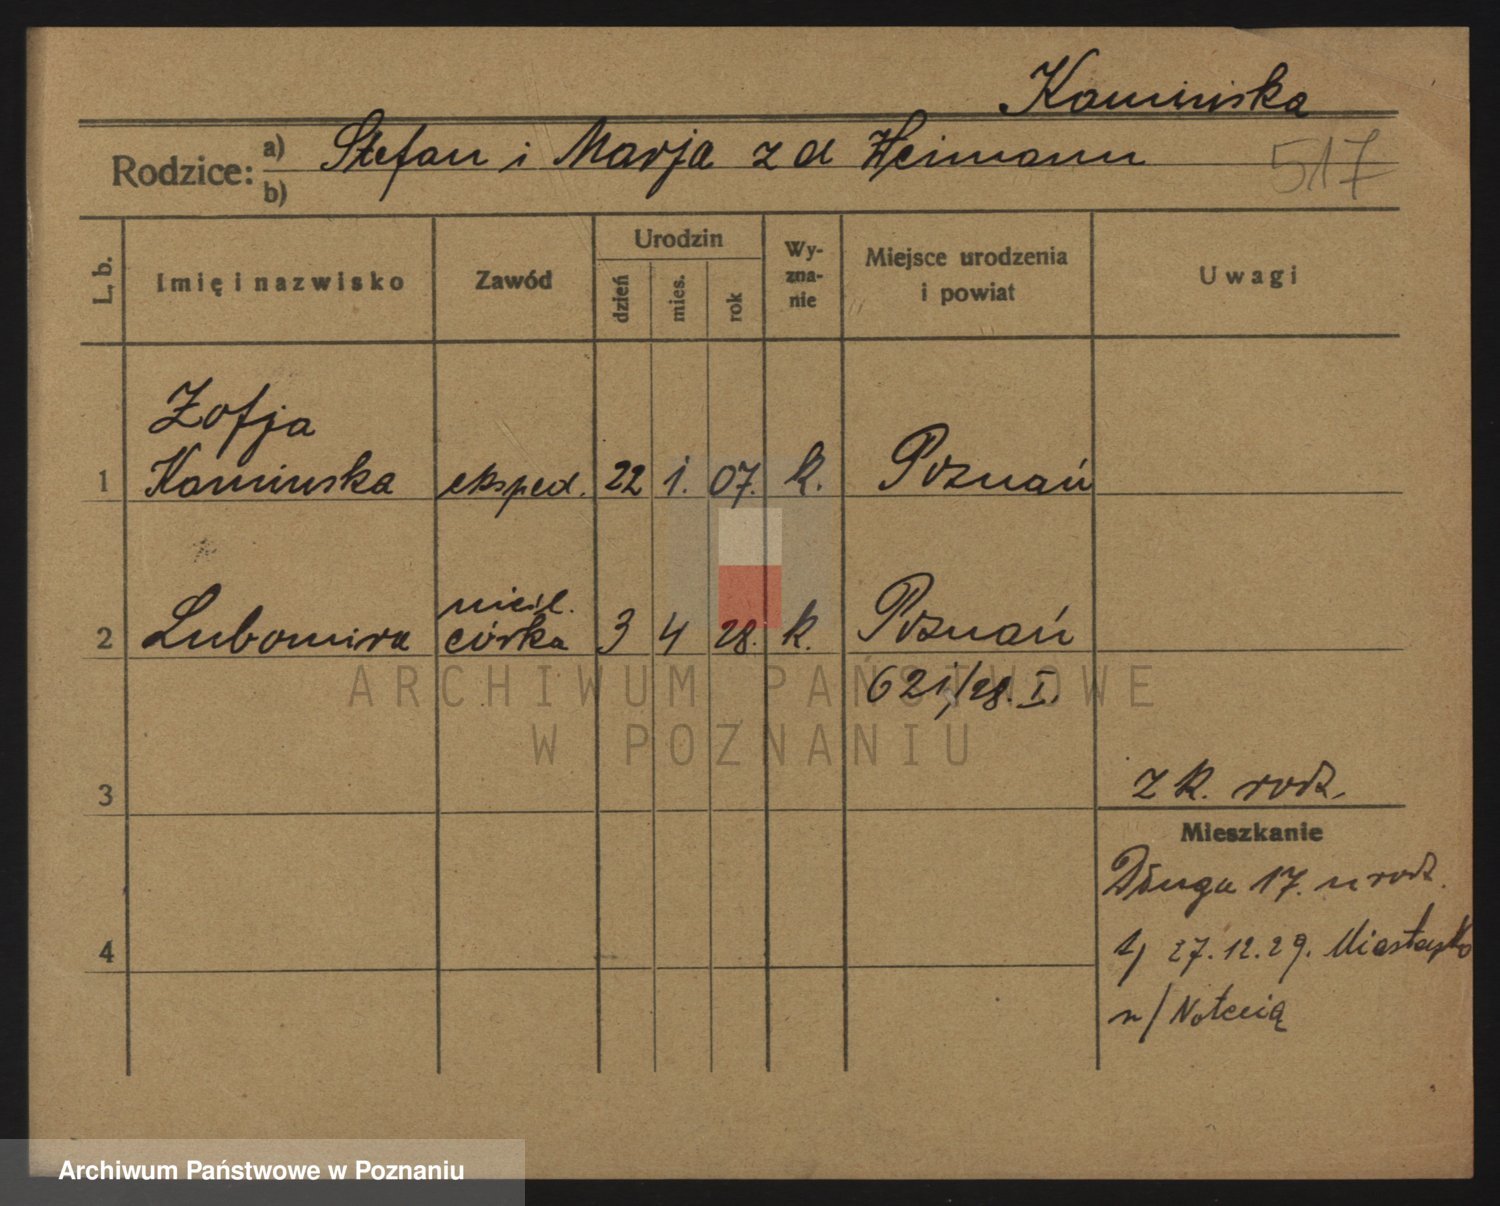 Kamińska
Rodzice: a) Stefan i Marja z d Heimann
b)
517
L. b.
Imię i nazwisko
Zawód
Urodzin
dzień
mies.
rok
Wy-
zna-
nie
Miejsce urodzenia
i powiat
Uwagi
Zofja
1 Kaminska eksped. 22 1. 07. k. Poznań
nieśl.
2 Lubomira córka 3 4 28. k. Poznań
621/28. I.
ARCHIWUM PAŃSTWOWE
W POZNANIU
z k. rodz.
3
Mieszkanie
Długa 17. u rodz.
4
1) 27.12.29. Miasteczko
n/Notecią
Archiwum Państwowe w Poznaniu